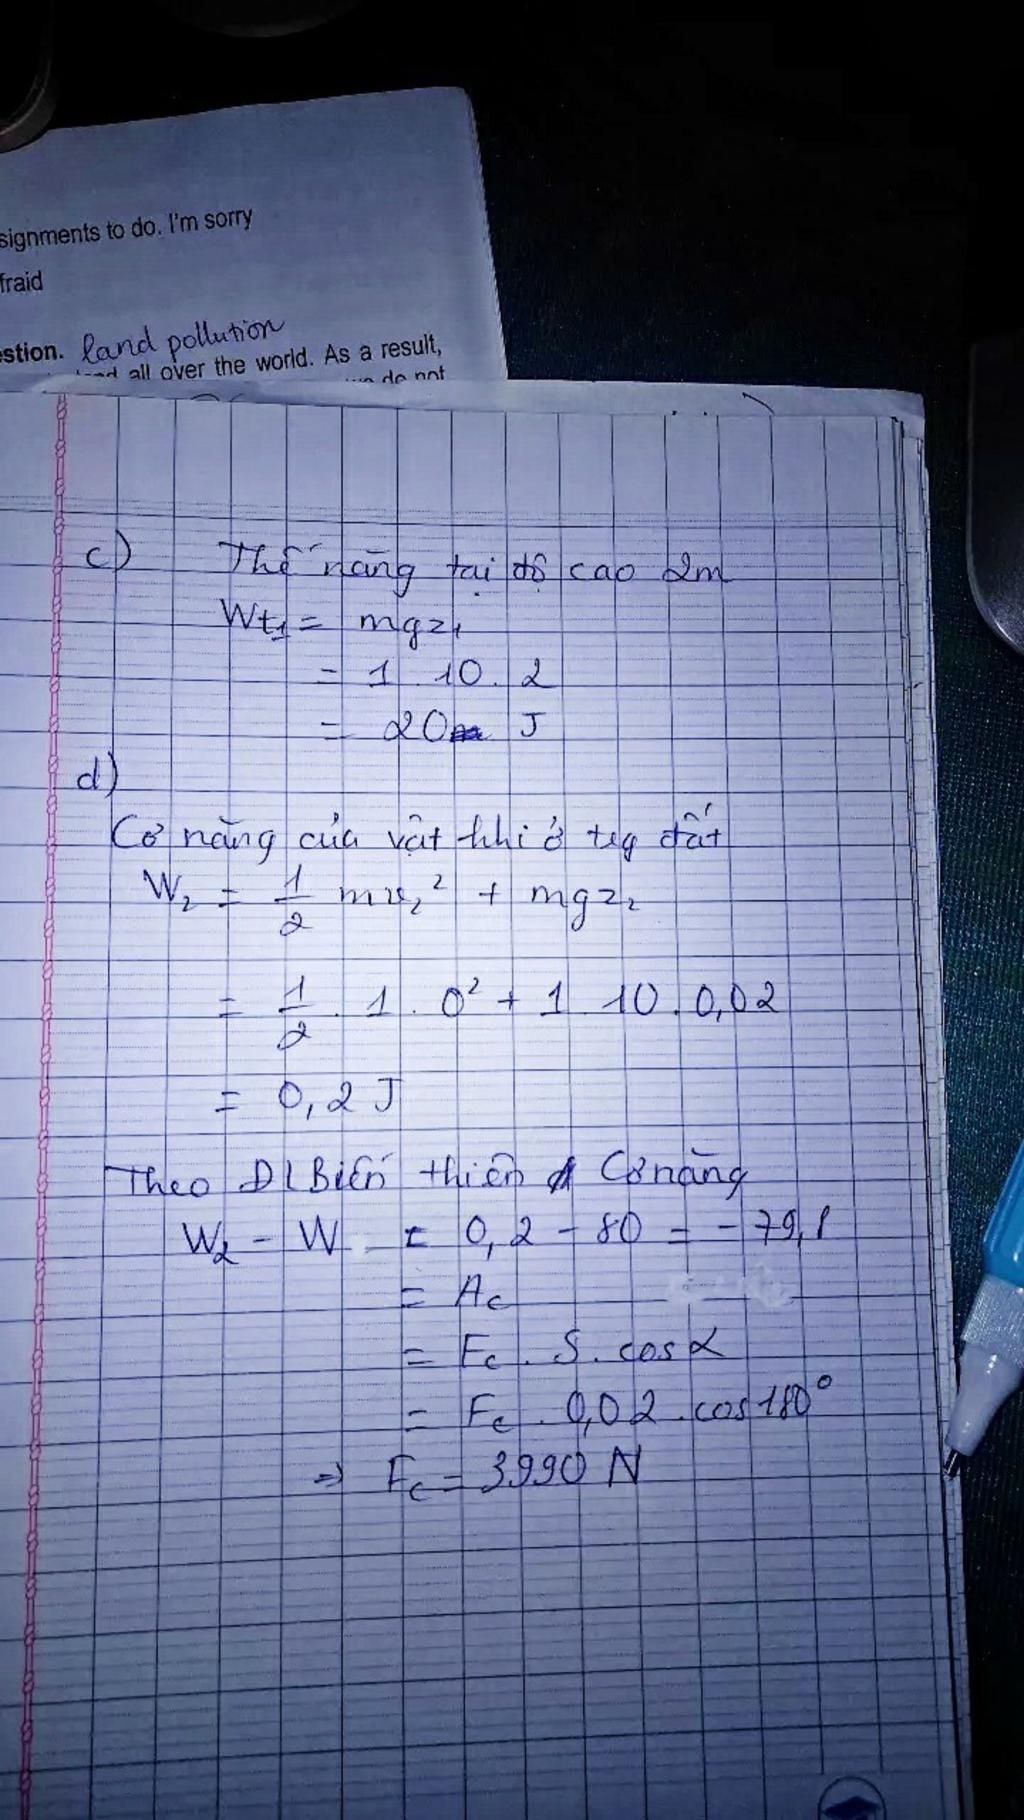 signments to do. I'm sorry
fraid
estion. land pollution
all over the world. As a result,
do not
c) Thế năng tại độ cao 2m
Wt1 = mgz1
= 1 . 10 . 2
= 20 J
d)
Cơ năng của vật khi ở trg đất
W2 = 1/2 mv2² + mgz2
= 1/2 . 1 . 0² + 1 . 10 . 0,02
= 0,2 J
Theo ĐL Biến thiên Cơ năng
W2 - W = 0,2 - 80 = -79,8
= Ac
= Fc . S . cosα
= Fc . 0,02 . cos180°
⇒ Fc = 3990 N